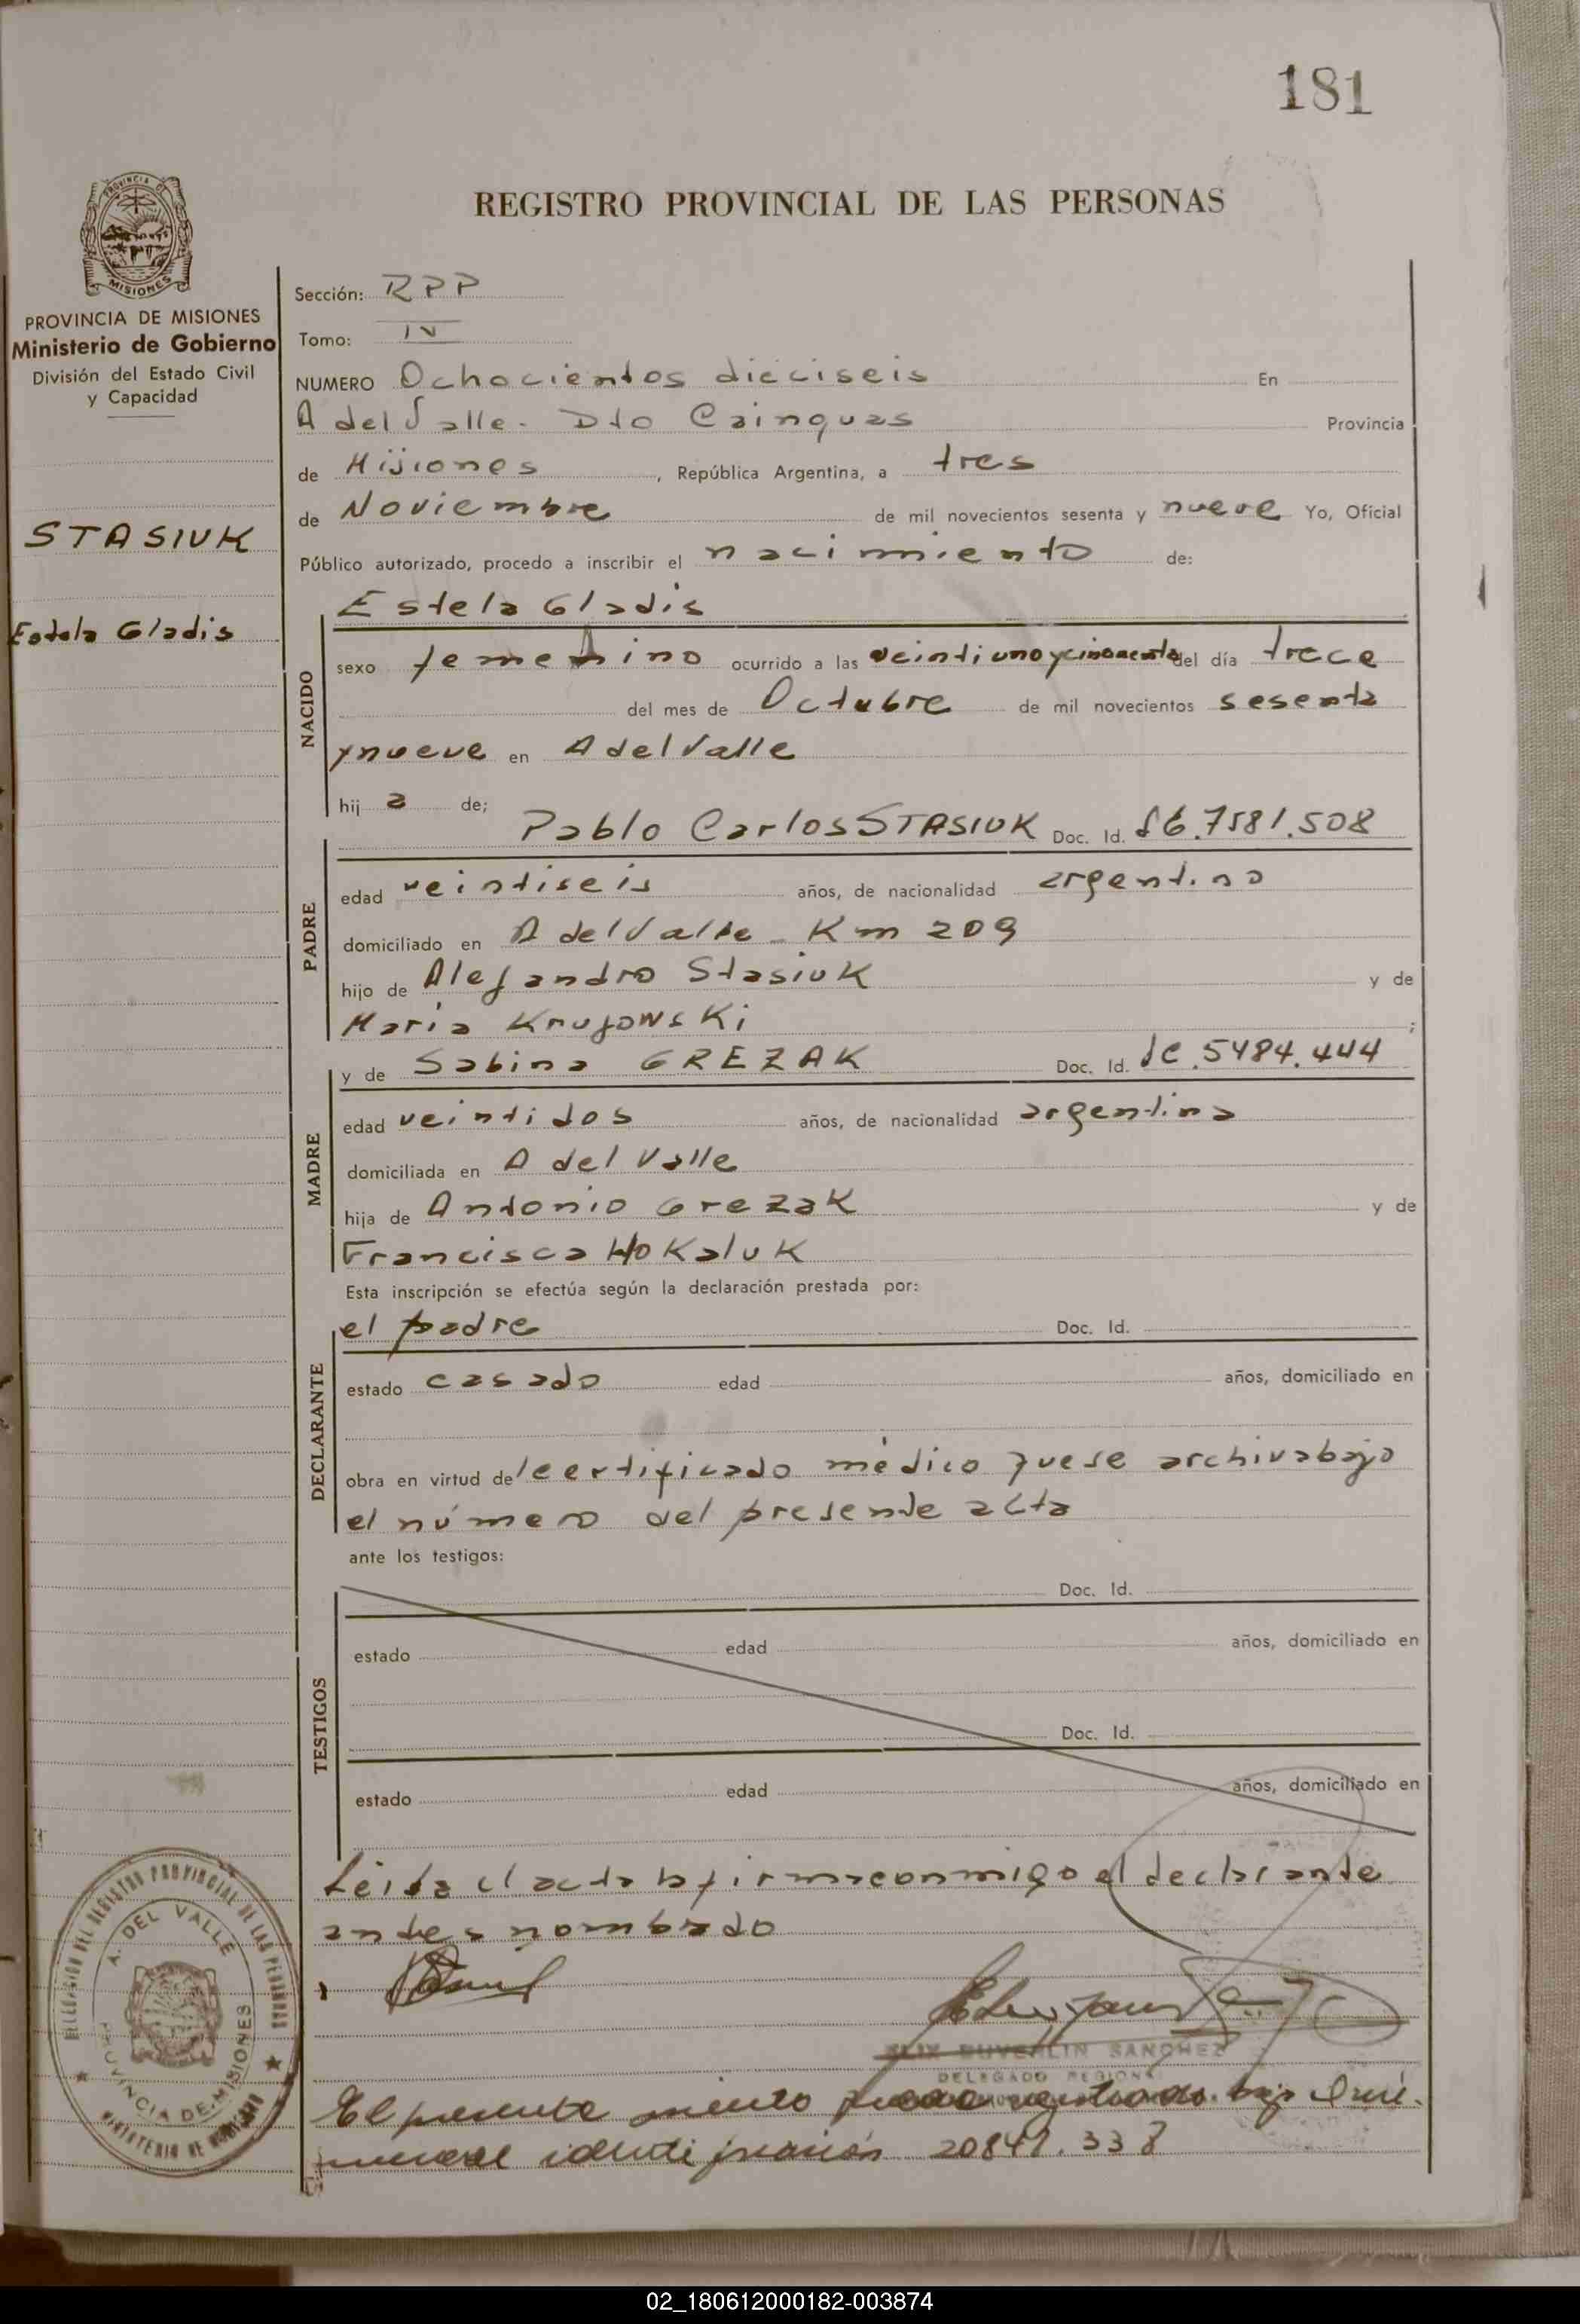 181
REGISTRO PROVINCIAL DE LAS PERSONAS
PROVINCIA DE MISIONES
PROVINCIA DE MISIONES
Ministerio de Gobierno
División del Estado Civil
y Capacidad
STASIUK
Estela Gladis
Sección: RPP
Tomo: IV
NUMERO Ochocientos dieciseis En
A del Valle. Dto Cainguas Provincia
de Misiones, República Argentina, a tres
de Noviembre de mil novecientos sesenta y nueve Yo, Oficial
Público autorizado, procedo a inscribir el nacimiento de:
Estela Gladis
NACIDO
sexo femenino ocurrido a las veintiuno y cincuenta del día trece
del mes de Octubre de mil novecientos sesenta
y nueve en A del Valle
hij a de;
Pablo Carlos STASIUK Doc. Id.
PADRE
edad veintiseis años, de nacionalidad argentino
domiciliado en A del Valle - Km 209
hijo de Alejandro Stasiuk y de
Maria Krujowski ;
y de Sabina GREZAK Doc. Id. 5484.444
MADRE
edad veintidos años, de nacionalidad argentina
domiciliada en A del Valle
hija de Antonio Grezak y de
Francisca Hokaluk
Esta inscripción se efectúa según la declaración prestada por:
el padre Doc. Id.
DECLARANTE
estado casado edad años, domiciliado en
obra en virtud del certificado médico que se archiva bajo
el número del presente acta
ante los testigos:
Doc. Id.
TESTIGOS
estado edad años, domiciliado en
Doc. Id.
estado edad años, domiciliado en
Leida el acta la firma conmigo el declarante
antes nombrado
DELEGACION DEL REGISTRO PROVINCIAL DE LAS PERSONAS
A. DEL VALLE
PROVINCIA DE MISIONES
MINISTERIO DE GOBIERNO
SANCHEZ
DELEGADO REGIONAL
El presente asiento queda registrado bajo
identificación 20841.338
02_180612000182-003874